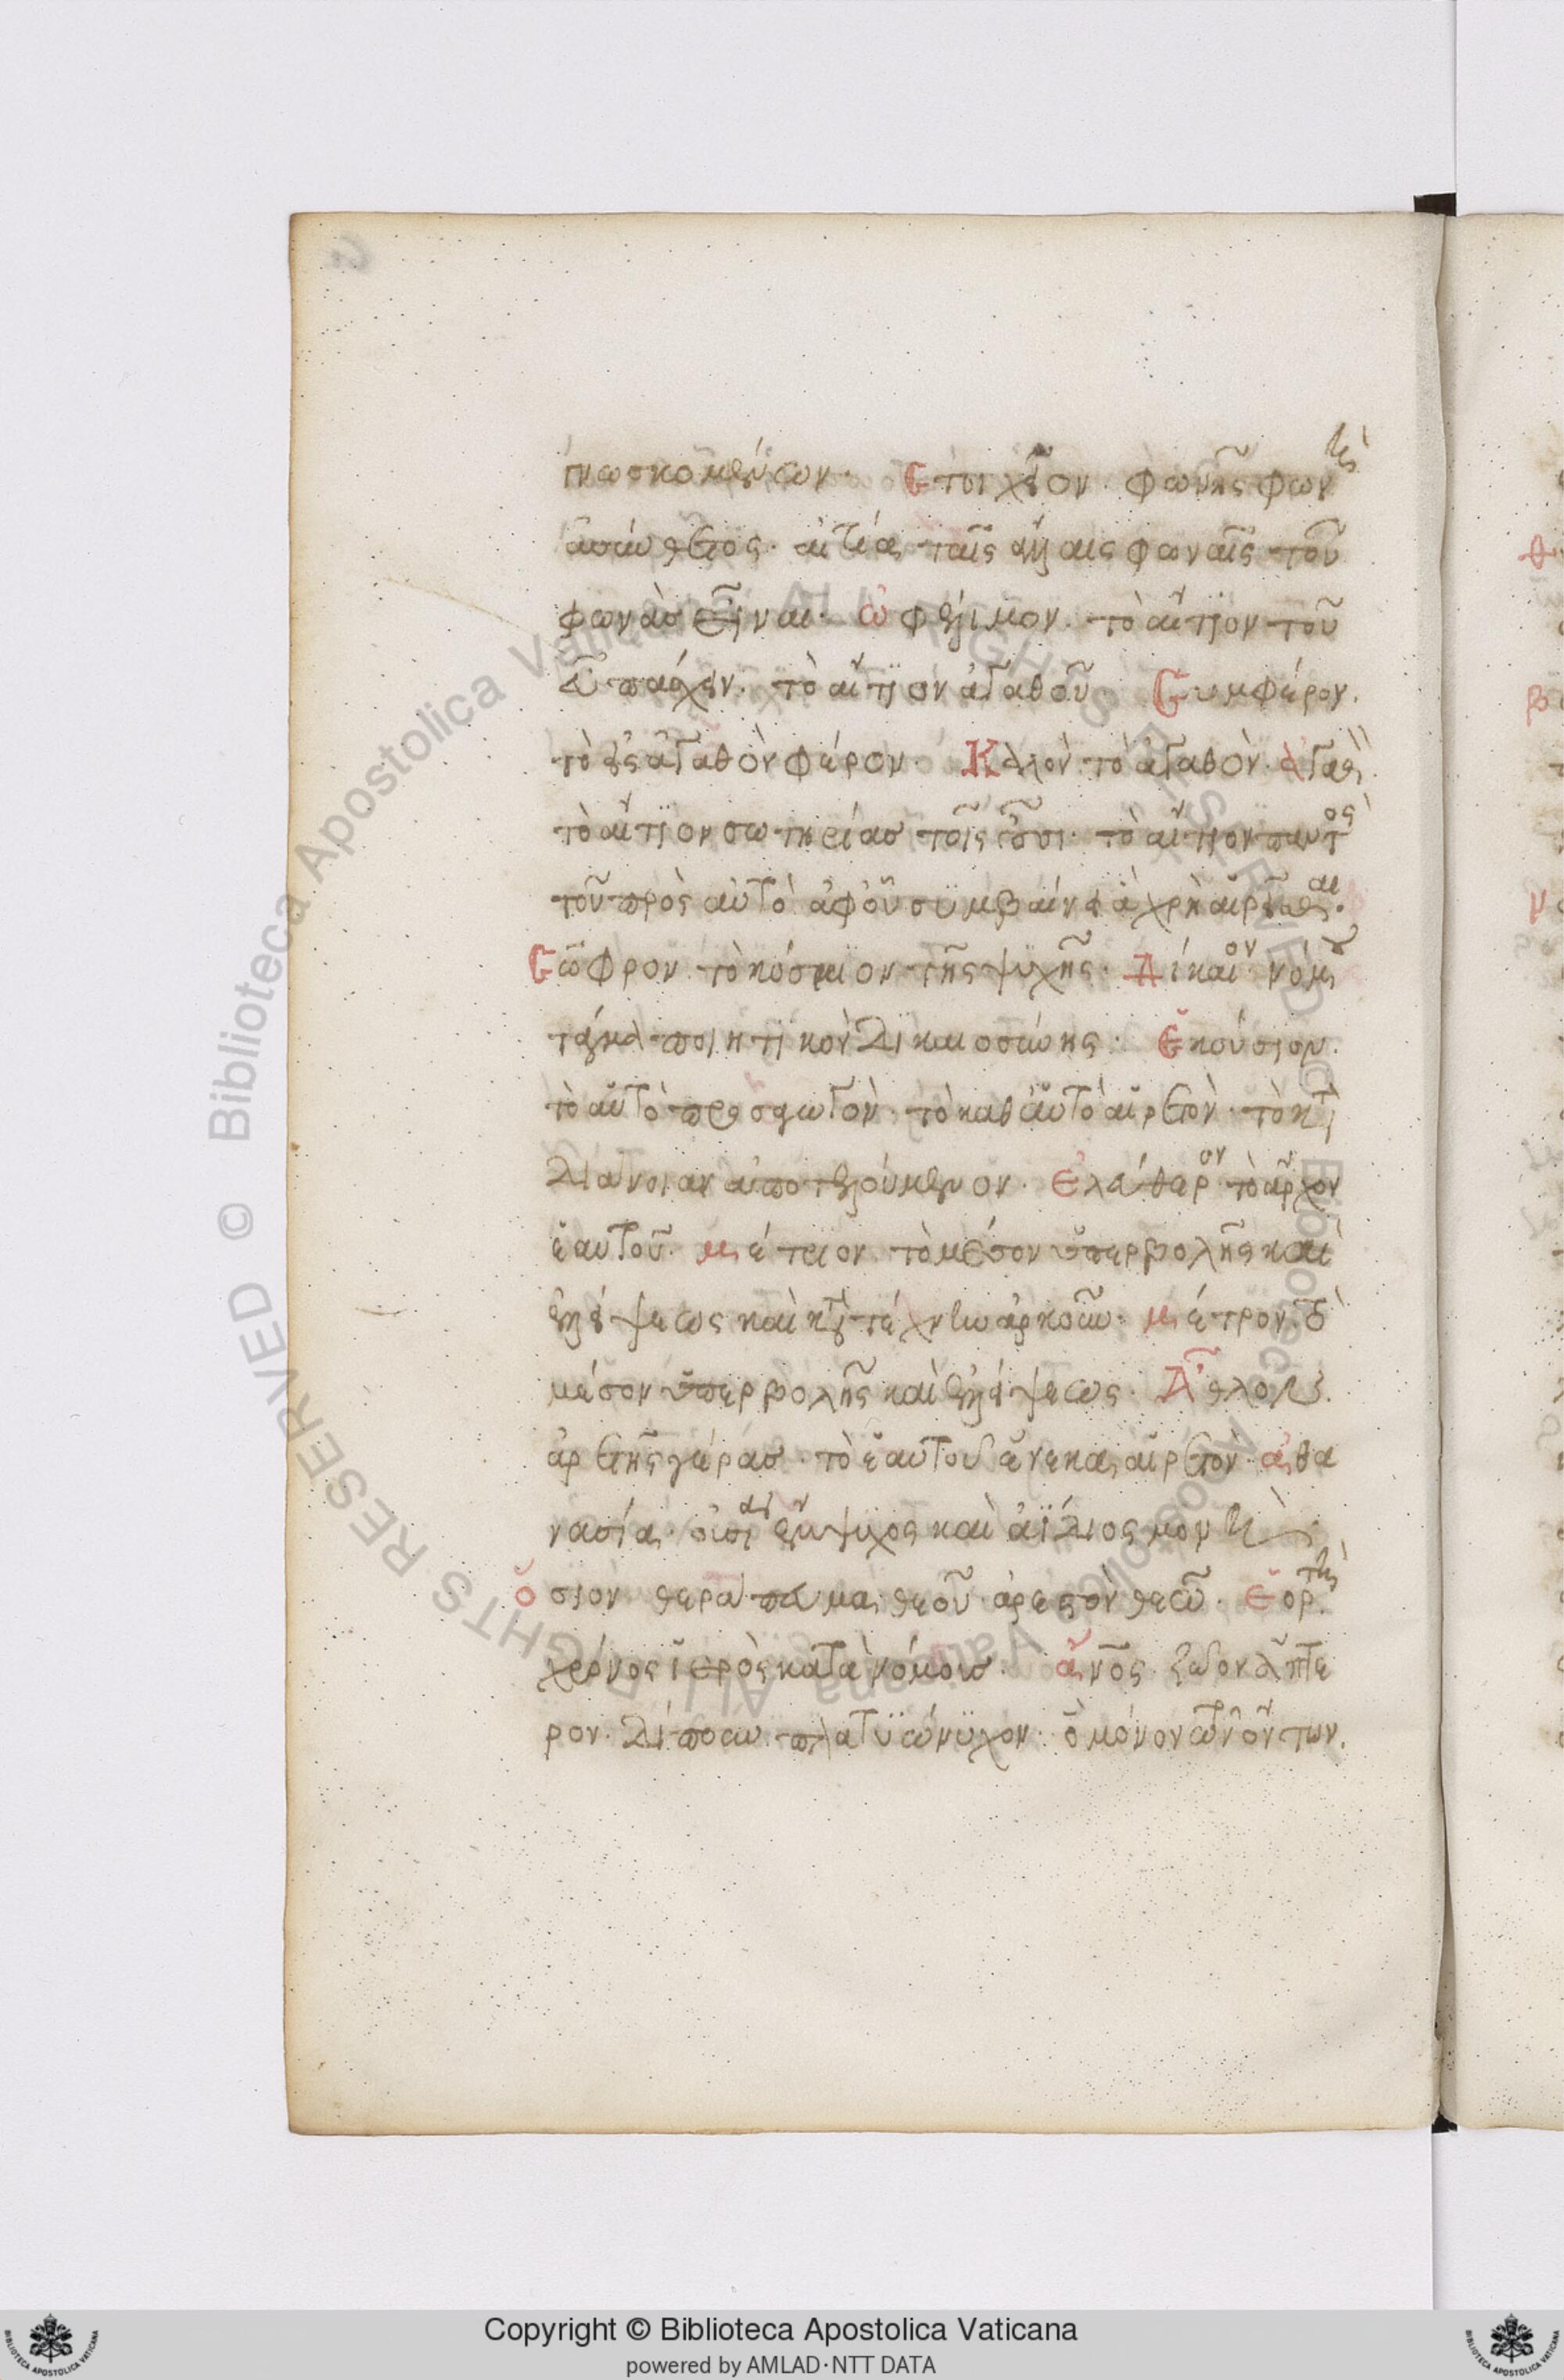 γνωσκομένων. Στοιχεῖον· φωνῆς φωνὴ
ἀσύνθετος· αἰτία ταῖς ἄλλαις φωναῖς τοῦ
φωνὰσ εἶναι. ὠφέλιμον. τὸ αἴτιον τοῦ
εὖ πάσχειν. τὸ αἴτιον ἀγαθοῦ Συμφέρον.
τὸ εἰς ἀγαθὸν φέρον. Καλὸν τὸ ἀγαθὸν. ἀγαθὸν
τὸ αἴτιον σωτηρίασ τοῖς οὖσι. τὸ αἴτιον παντὸς
τοῦ πρὸς αὐτὸ ἀφ' οὗ συμβαίνει ἃ χρὴ αἱρεῖσθαι.
Σῶφρον τὸ κόσμιον τῆς ψυχῆς. Δίκαιον νόμου
τάγμα ποιητικὸν δικαιοσύνης. Ἑκούσιον.
τὸ αὑτὸ προσαγωγὸν. τὸ καθ' αὑτὸ αἱρετὸν. τὸ κατὰ
διάνοιαν ἀποτελούμενον. Ἐλεύθερον τὸ ἄρχον
ἑαυτοῦ. μέτριον τὸ μέσον ὑπερβολῆς καὶ
ἐλλείψεως καὶ κατὰ τέχνην ἀρκοῦν. μέτρον τὸ
μέσον ὑπερβολῆς καὶ ἐλλείψεως. Ἆθλον.
ἀρετῆς γέρασ. τὸ ἑαυτοῦ ἕνεκα αἱρετόν. ἀθα
νασία. οὐσία ἔμψυχος καὶ ἀΐδιος μονὴ
ὅσιον θεράπευμα θεοῦ ἀρεστὸν θεῶ. Ἑορτὴ
χρόνος ἱερὸς κατὰ νόμουσ. ἄνος. ζῶον ἄπτε
ρον. δίπουν. πλατυώνυχον. ὃ μόνον τῶν ὄντων.
Copyright © Biblioteca Apostolica Vaticana
powered by AMLAD·NTT DATA